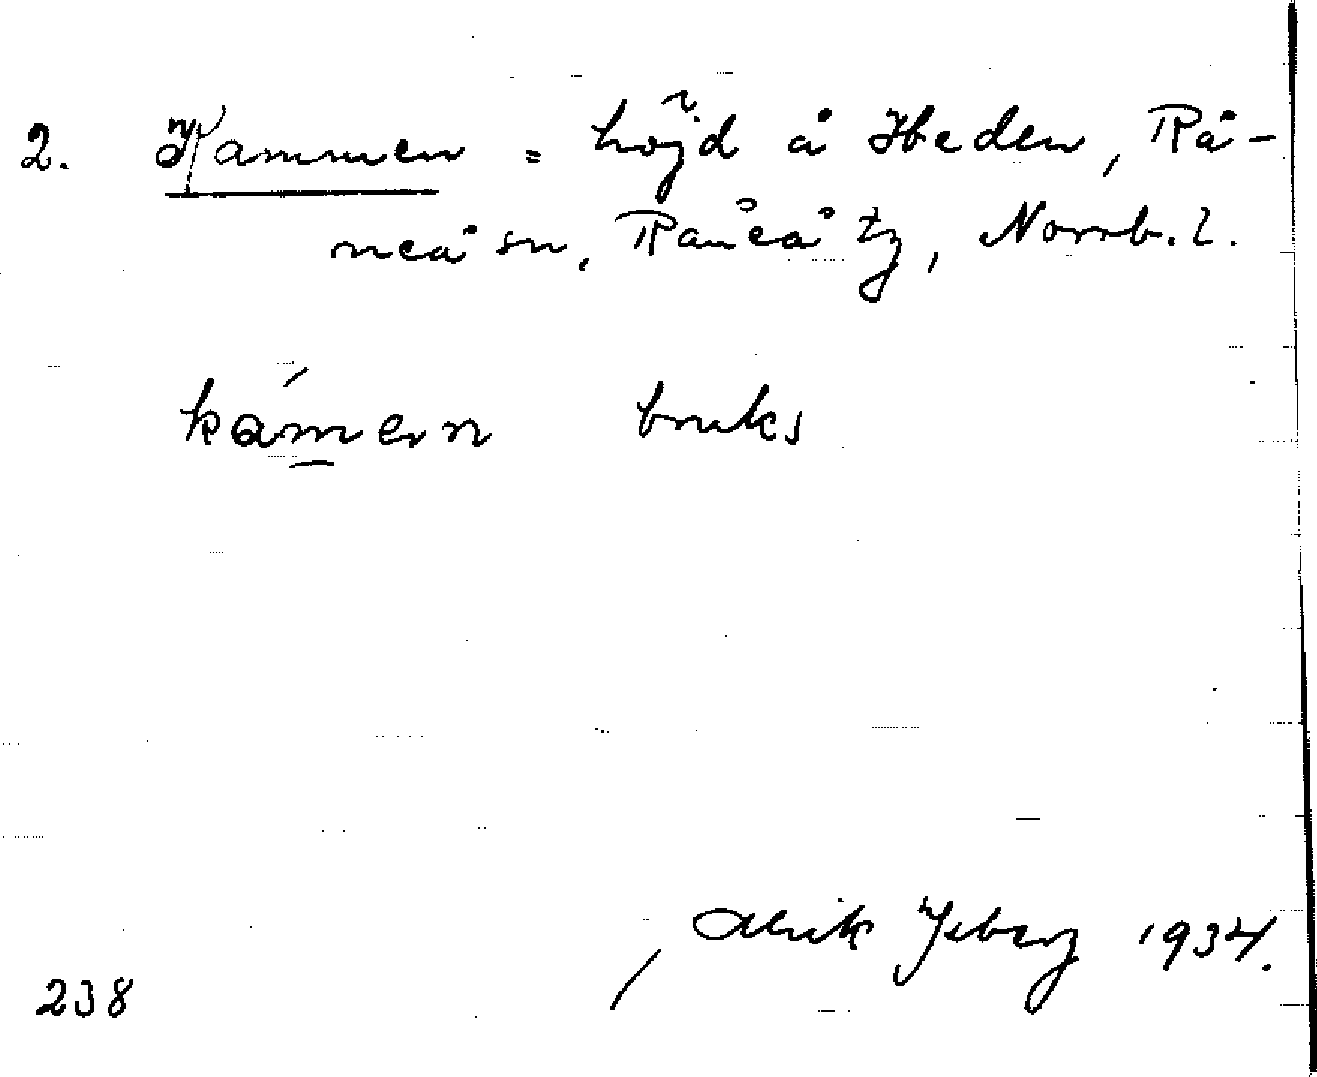 2. Kammen = höjd å Heden, Rå-
neå sn, Råneå tg, Norrb. l.
kámen bruks
Alrik Ysberg 1934.
238